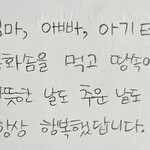 엄마, 아빠, 아기
목화솜을 먹고 땅속에
따뜻한 날도 추운 날도
항상 행복했답니다.